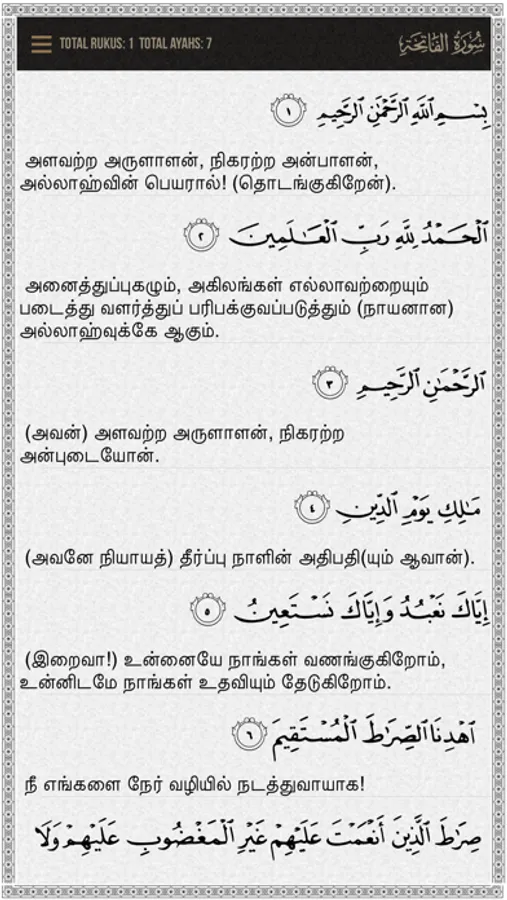 TOTAL RUKUS: 1 TOTAL AYAHS: 7 سُورَةُ الفَاتِحَة
بِسْمِ ٱللَّهِ ٱلرَّحْمَٰنِ ٱلرَّحِيمِ ١
அளவற்ற அருளாளன், நிகரற்ற அன்பாளன்,
அல்லாஹ்வின் பெயரால்! (தொடங்குகிறேன்).
ٱلْحَمْدُ لِلَّهِ رَبِّ ٱلْعَٰلَمِينَ ٢
அனைத்துப்புகழும், அகிலங்கள் எல்லாவற்றையும்
படைத்து வளர்த்துப் பரிபக்குவப்படுத்தும் (நாயனான)
அல்லாஹ்வுக்கே ஆகும்.
ٱلرَّحْمَٰنِ ٱلرَّحِيمِ ٣
(அவன்) அளவற்ற அருளாளன், நிகரற்ற
அன்புடையோன்.
مَٰلِكِ يَوْمِ ٱلدِّينِ ٤
(அவனே நியாயத்) தீர்ப்பு நாளின் அதிபதி(யும் ஆவான்).
إِيَّاكَ نَعْبُدُ وَإِيَّاكَ نَسْتَعِينُ ٥
(இறைவா!) உன்னையே நாங்கள் வணங்குகிறோம்,
உன்னிடமே நாங்கள் உதவியும் தேடுகிறோம்.
ٱهْدِنَا ٱلصِّرَٰطَ ٱلْمُسْتَقِيمَ ٦
நீ எங்களை நேர் வழியில் நடத்துவாயாக!
صِرَٰطَ ٱلَّذِينَ أَنْعَمْتَ عَلَيْهِمْ غَيْرِ ٱلْمَغْضُوبِ عَلَيْهِمْ وَلَا